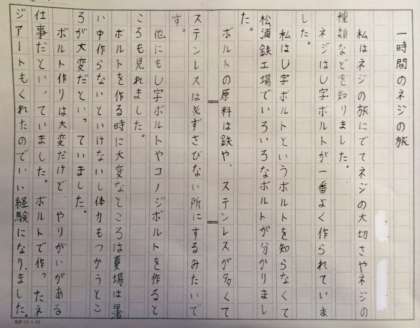 一時間のネジの旅
私はネジの旅にでてネジの大切さやネジの
種類などを知りました。
ネジはU字ボルトが一番よく作られていま
した。
私はU字ボルトというボルトを知らなくて
松浦鉄工場でいろいろなボルトが分かりまし
た。
ボルトの原料は鉄や、ステンレスが多くて
ステンレスは必ずさびない所にするみたいで
す。
他にもU字ボルトやコノジボルトを作ると
ころも見れました。
ボルトを作る時に大変なところは夏場は暑
い中作らないといけないし体りもつかうとこ
ろが大変だといっていました。
ボルト作りは大変だけど、やりがいがある
仕事だといっていました。ボルトで作ったネ
ジアートもくれたのでいい経験になりました。